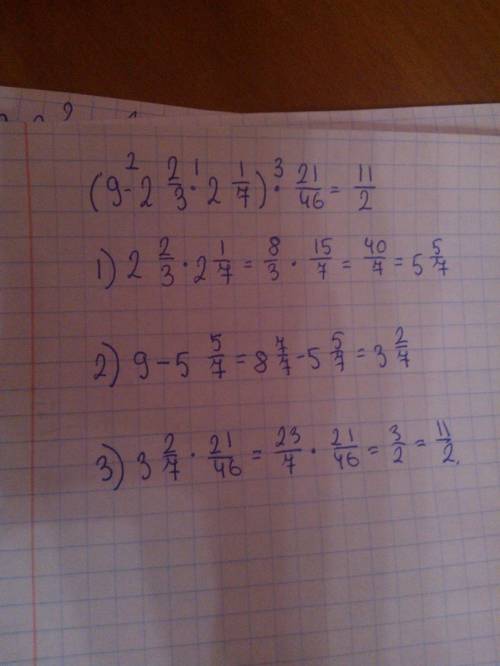 (9 - 2 2/3 · 2 1/7) · 21/46 = 11/2
2 1 3
1) 2 2/3 · 2 1/7 = 8/3 · 15/7 = 40/7 = 5 5/7
2) 9 - 5 5/7 = 8 7/7 - 5 5/7 = 3 2/7
3) 3 2/7 · 21/46 = 23/7 · 21/46 = 3/2 = 11/2.